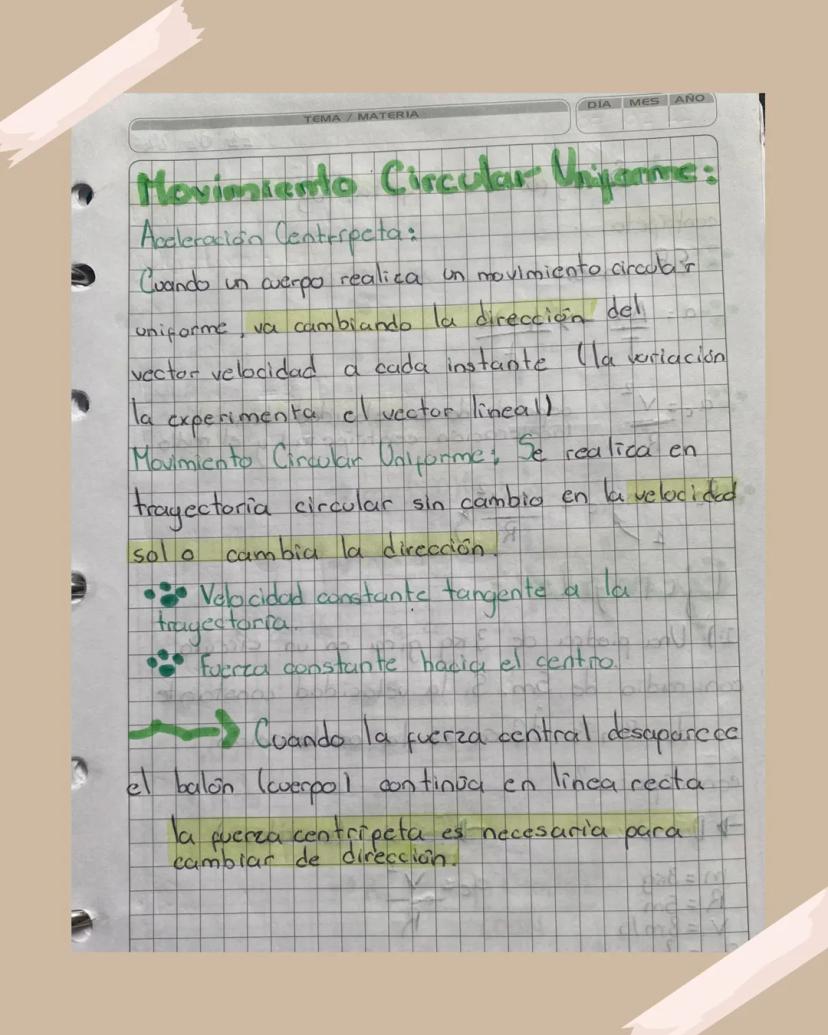 TEMA / MATERIA
DIA MES AÑO
Movimiento Circular Uniforme:
Aceleración Centrípeta:
Cuando un cuerpo realica un movimiento circular
uniforme, va cambiando la dirección del
vector velocidad a cada instante (la variación
la experimenta el vector lineal)
Movimiento Circular Uniforme: Se realica en
trayectoria circular sin cambio en la velocidad
solo cambia la dirección.
Velocidad constante tangente a la
trayectoria.
Fuerza constante hacia el centro.
Cuando la fuerza central desaparece
el balón (cuerpo) continúa en línea recta
la fuerza centrípeta es necesaria para
cambiar de dirección.